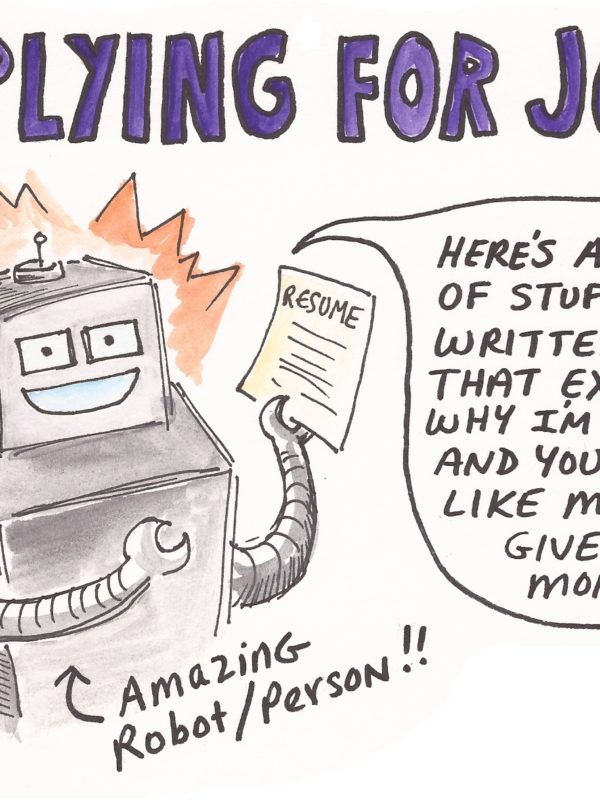 PLYING FOR JO
RESUME
HERE'S A
OF STUF
WRITTE
THAT EX
WHY I'M
AND YOU
LIKE M
GIVE
MON
AMAZING
ROBOT/PERSON!!